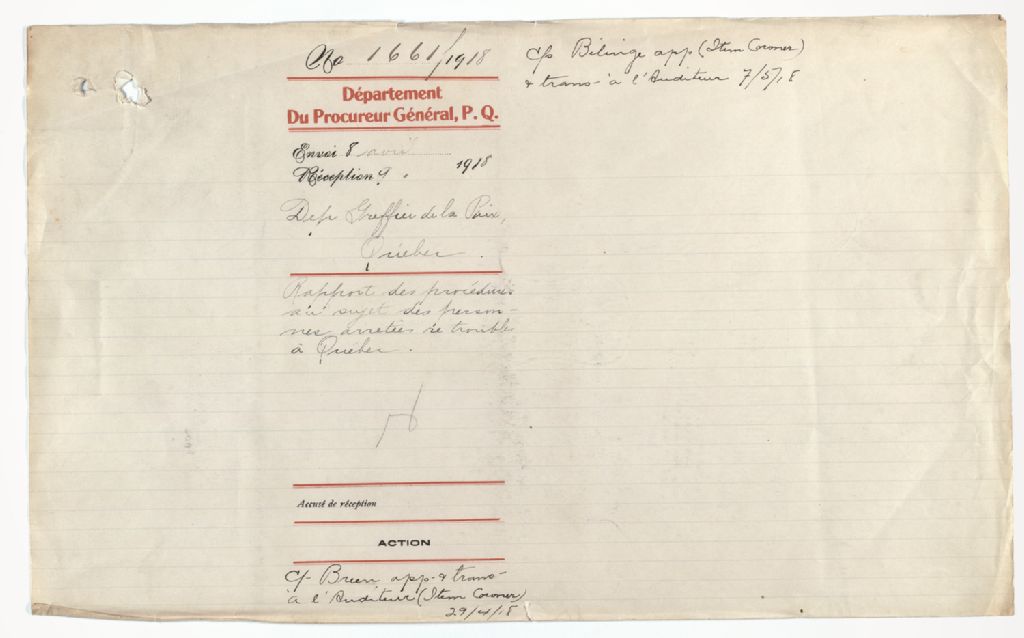 No 1661/1918
Département
Du Procureur Général, P. Q.
Envoi 8 avril
Réception 9 " 1918
Dep Greffier de la Paix,
Québec.
Rapport des procédures
au sujet des person-
nes arretées re troubles
à Québec.
Accusé de réception
ACTION
c/- Breen app. & trans-
à l'Auditeur (Item Coroner)
29/4/18
c/s Bélinge app (Item Coroner)
& trans- à l'Auditeur 7/5/18